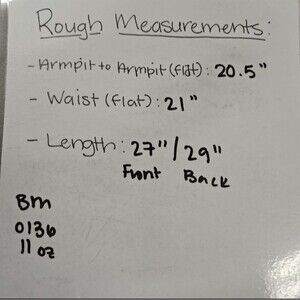 Rough Measurements:
- Armpit to Armpit (flat): 20.5"
- Waist (flat): 21"
- Length: 27"/29"
Front Back
Bm
0136
11 oz